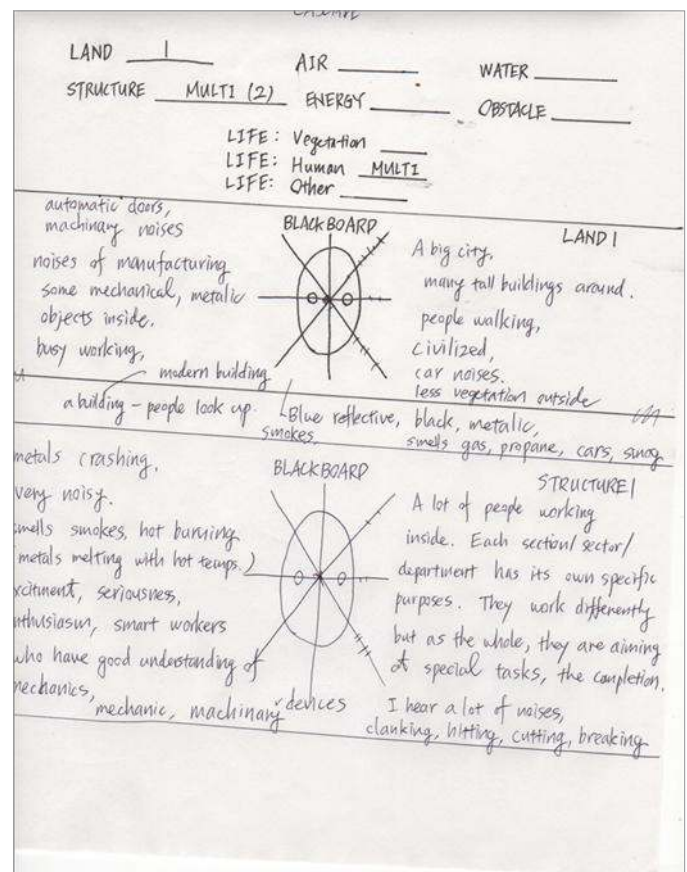 LAND 1 AIR WATER
STRUCTURE MULTI (2) ENERGY OBSTACLE
LIFE: Vegetation
LIFE: Human MULTI
LIFE: Other
LAND 1
BLACKBOARD
automatic doors,
machinary noises
noises of manufacturing
some mechanical, metalic
objects inside.
busy working,
modern building
a building - people look up.
A big city.
many tall buildings around.
people walking,
Civilized,
car noises.
less vegetation outside
Blue reflective, black, metalic,
smokes, smells gas, propane, cars, smog
STRUCTURE 1
BLACKBOARD
metals crashing.
very noisy.
smells smokes, hot burning
(metals melting with hot temps.)
xcitment, seriousness,
nthusiasm, smart workers
who have good understanding of
mechanics,
mechanic, machinary devices
A lot of people working
inside. Each section/sector/
department has its own specific
purposes. They work differently
but as the whole, they are aiming
at special tasks, the completion.
I hear a lot of noises,
clanking, hitting, cutting, breaking